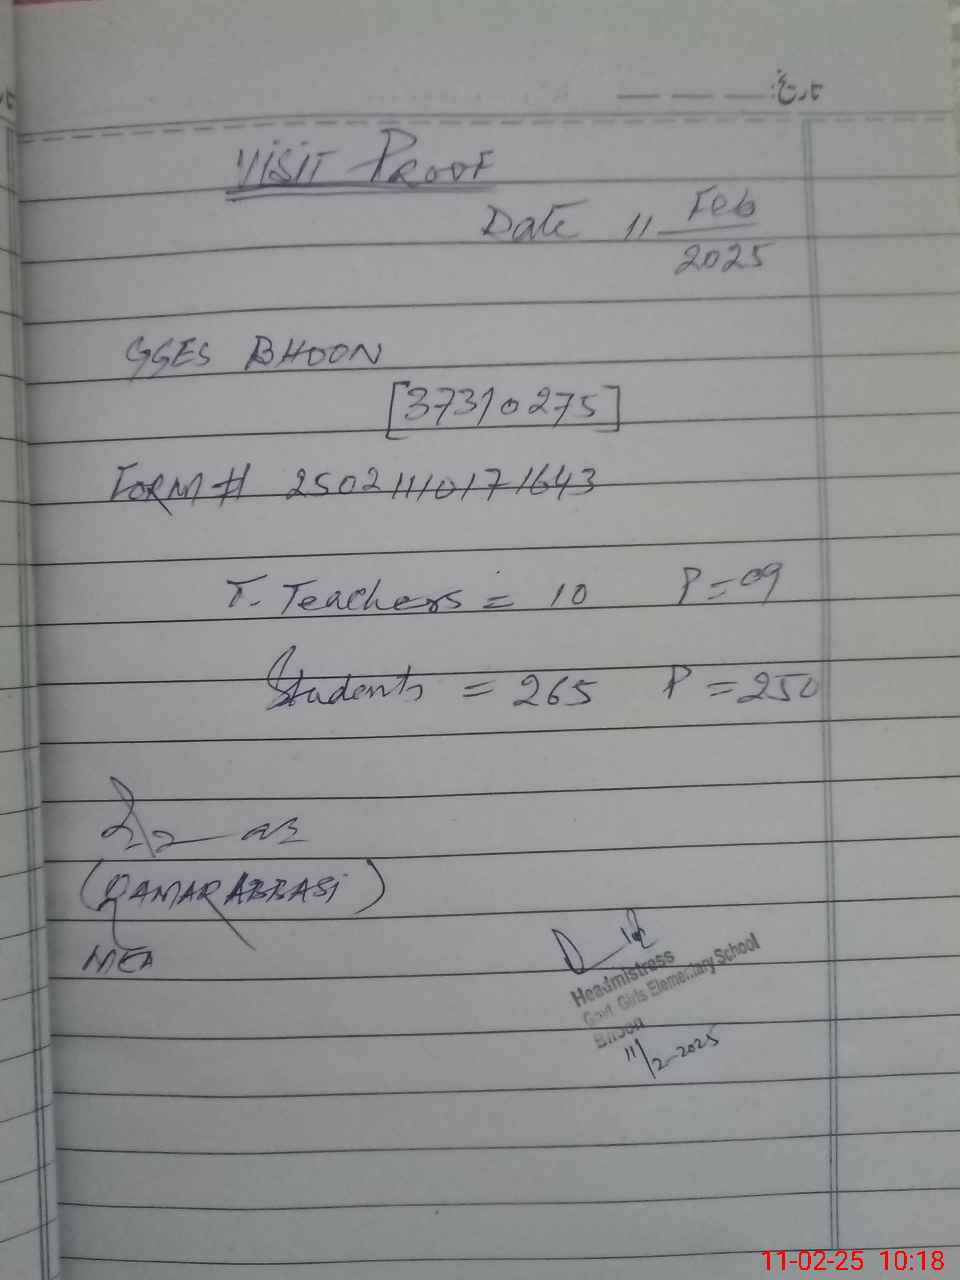 تاریخ:
VISIT PROOF
Date 11 Feb
2025
GGES BHOON
[37310275]
FORM # 25021110171643
T. Teachers = 10 P = 09
Students = 265 P = 250
(QAMAR ABBASI)
MEA
Headmistress
Govt. Girls Elementary School
Bhoon
11/2-2025
11-02-25 10:18